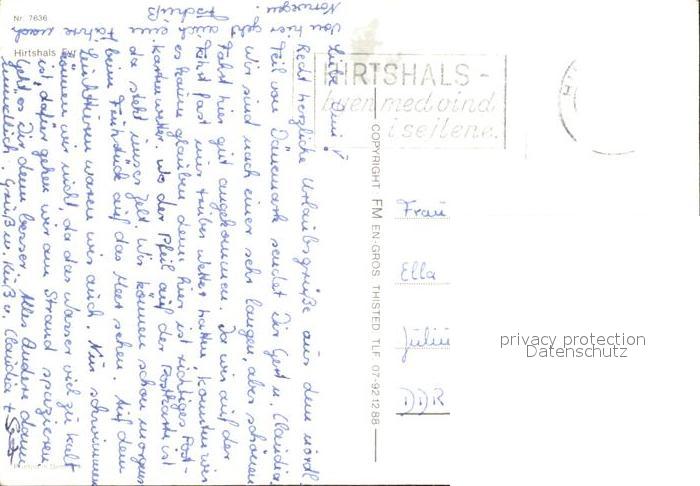 Nr. 7636
Hirtshals Fyr
HIRTSHALS -
byen med vind
i seilene.
COPYRIGHT FM EN-GROS THISTED TLF 07-92 12 88
Recht herzliche Urlaubsgrüße aus dem nördl.
Teil von Dänemark sendet Dir Gert u. Claudia.
Wir sind nach einer sehr langen, aber schönen
Fahrt hier gut angekommen. Da wir auf der
Fahrt fast nur trübes Wetter hatten, konnten wir
es kaum glauben, denn hier ist richtiges Post-
kartenwetter. Wo der Pfeil auf der Postkarte ist
da steht unser Zelt. Wir können schon morgens
beim Frühstück auf das Meer sehen. Auf dem
Leuchtturm waren wir auch. Nur schwimmen
können wir nicht, da das Wasser viel zu kalt
ist, dafür gehen wir am Strand spazieren.
Geht es Dir denn besser. Alles Andere dann
mündlich. Gruß u. Kuß v. Claudia + Gert
Von hier
geht
auch
eine
Fähre nach
Norwegen
Frau
Ella
DDR
privacy protection
Datenschutz